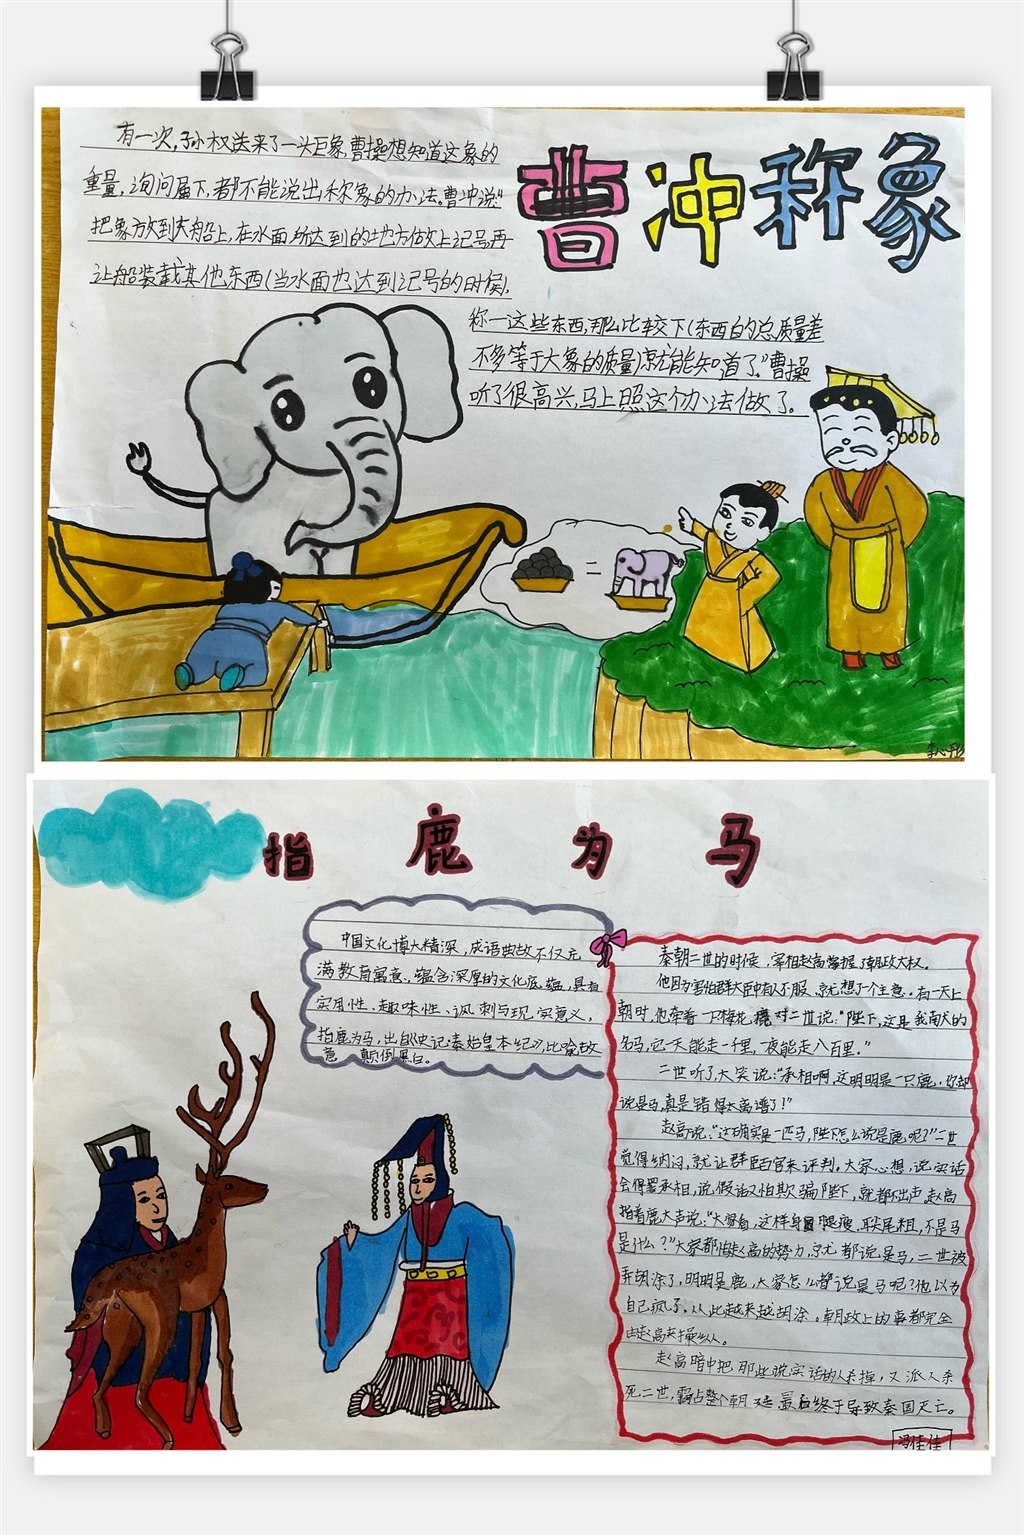 曹冲称象
有一次，孙权送来了一头巨象，曹操想知道这象的
重量，询问属下，都不能说出称象的办法。曹冲说："
把象放到大船上，在水面所达到的地方做上记号，再
让船装载其他东西(当水面也达到记号的时候)，
称一这些东西，那么比较下(东西的总质量差
不多等于大象的质量)就能知道了。"曹操
听了很高兴，马上照这个办法做了。
=
李心彤
指鹿为马
中国文化博大精深，成语典故不仅充
满教育寓意，蕴含深厚的文化底蕴，具有
实用性、趣味性、讽刺与现实意义，
指鹿为马，出自《史记·秦始皇本纪》，比喻故
意 颠倒黑白。
秦朝二世的时候，宰相赵高掌握了朝政大权。
他因为害怕群大臣中有人不服，就想了一个主意。有一天上
朝时，他牵着一下梅花鹿对二世说："陛下，这是我献的
名马，它一天能走一千里，夜能走八百里。"
二世听了，大笑说："承相啊，这明明是一只鹿，你却
说是马，真是错得太离谱了！"
赵高说："这确实是一匹马，陛下怎么说是鹿呢？"二世
觉得纳闷，就让群臣百官来评判。大家心想，说实话
会得罪承相，说假话又怕欺骗陛下，就都不出声。赵高
指着鹿大声说："大家看，这样身圆腿瘦，耳尖尾粗，不是马
是什么？"大家都怕赵高的势力，就都说是马，二世被
弄胡涂了，明明是鹿，大家怎么都说是马呢？他以为
自己疯了，从此越来越胡涂。朝政上的事都完全
由赵高来操纵。
赵高暗中把那些说实话的人杀掉，又派人杀
死二世，霸占整个朝廷，最后终于导致秦国灭亡。
冯佳佳